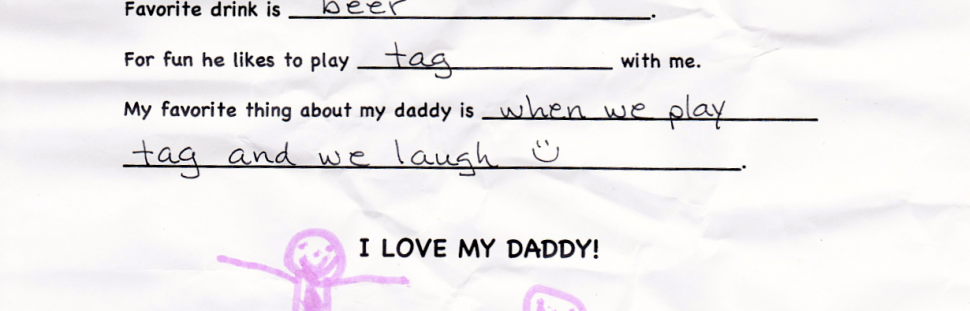 Favorite drink is beer.
For fun he likes to play tag with me.
My favorite thing about my daddy is when we play
tag and we laugh.
I LOVE MY DADDY!